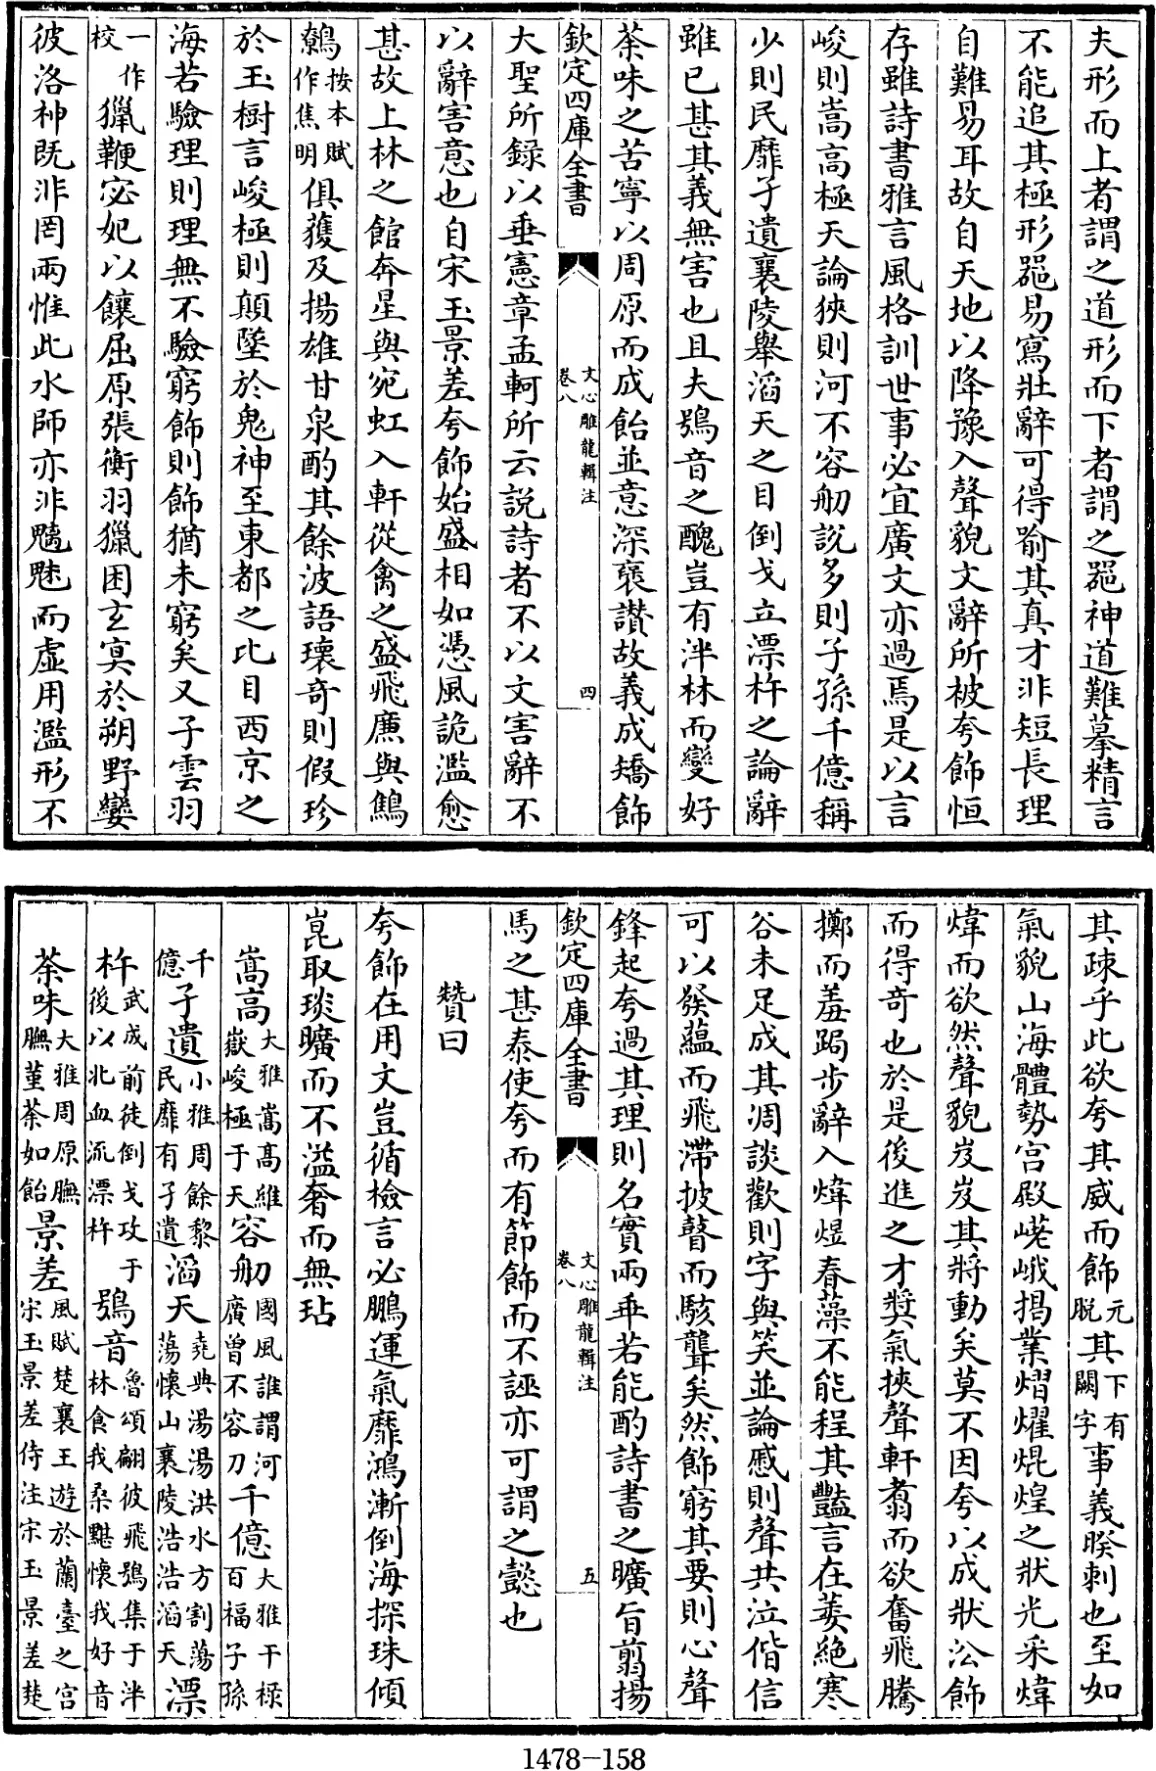 夫形而上者謂之道形而下者謂之噐神道難摹精言
不能追其極形噐易寫壯辭可得喻其真才非短長理
自難易耳故自天地以降豫入聲貌文辭所被夸飾恒
存雖詩書雅言風格訓世事必宜廣文亦過焉是以言
峻則嵩高極天論狹則河不容舠説多則子孫千億稱
少則民靡孑遺襄陵舉滔天之目倒戈立漂杵之論辭
雖已甚其義無害也且夫鴞音之醜豈有泮林而變好
荼味之苦寧以周原而成飴並意深褒讚故義成矯飾
欽定四庫全書 文心雕龍輯注 卷八 四
大聖所録以垂憲章孟軻所云説詩者不以文害辭不
以辭害意也自宋玉景差夸飾始盛相如憑風詭濫愈
甚故上林之館奔星與宛虹入軒從禽之盛飛廉與鷦
鷯按本賦作焦明俱獲及揚雄甘泉酌其餘波語瓌奇則假珍
於玉樹言峻極則顛墜於鬼神至東都之比目西京之
海若驗理則理無不驗窮飾則飾猶未窮矣又子雲羽
一作校獵鞭宓妃以饟屈原張衡羽獵困玄冥於朔野孌
彼洛神既非罔兩惟此水師亦非魑魅而虚用濫形不
其疎乎此欲夸其威而飾元脱其下有闕字事義暌刺也至如
氣貌山海體勢宫殿嵯峨揭業熠燿焜煌之狀光采煒
煒而欲然聲貌岌岌其將動矣莫不因夸以成狀沿飾
而得奇也於是後進之才奬氣挾聲軒翥而欲奮飛騰
擲而羞跼步辭入煒煜春藻不能程其豔言在萎絶寒
谷未足成其凋談歡則字與笑並論慼則聲共泣偕信
可以發藴而飛滯披瞽而駭聾矣然飾窮其要則心聲
鋒起夸過其理則名實兩乖若能酌詩書之曠旨翦揚
欽定四庫全書 文心雕龍輯注 卷八 五
馬之甚泰使夸而有節飾而不誣亦可謂之懿也
贊曰
夸飾在用文豈循檢言必鵬運氣靡鴻漸倒海探珠傾
崑取琰曠而不溢奢而無玷
嵩高大雅嵩高維嶽峻極于天容舠國風誰謂河廣曾不容刀千億大雅干祿百福子孫
千億孑遺小雅周餘黎民靡有孑遺滔天堯典湯湯洪水方割蕩蕩懷山襄陵浩浩滔天漂
杵武成前徒倒戈攻于後以北血流漂杵鴞音魯頌翩彼飛鴞集于泮林食我桑黮懷我好音
荼味大雅周原膴膴菫荼如飴景差風賦楚襄王遊於蘭臺之宫宋玉景差侍注宋玉景差楚
1478-158